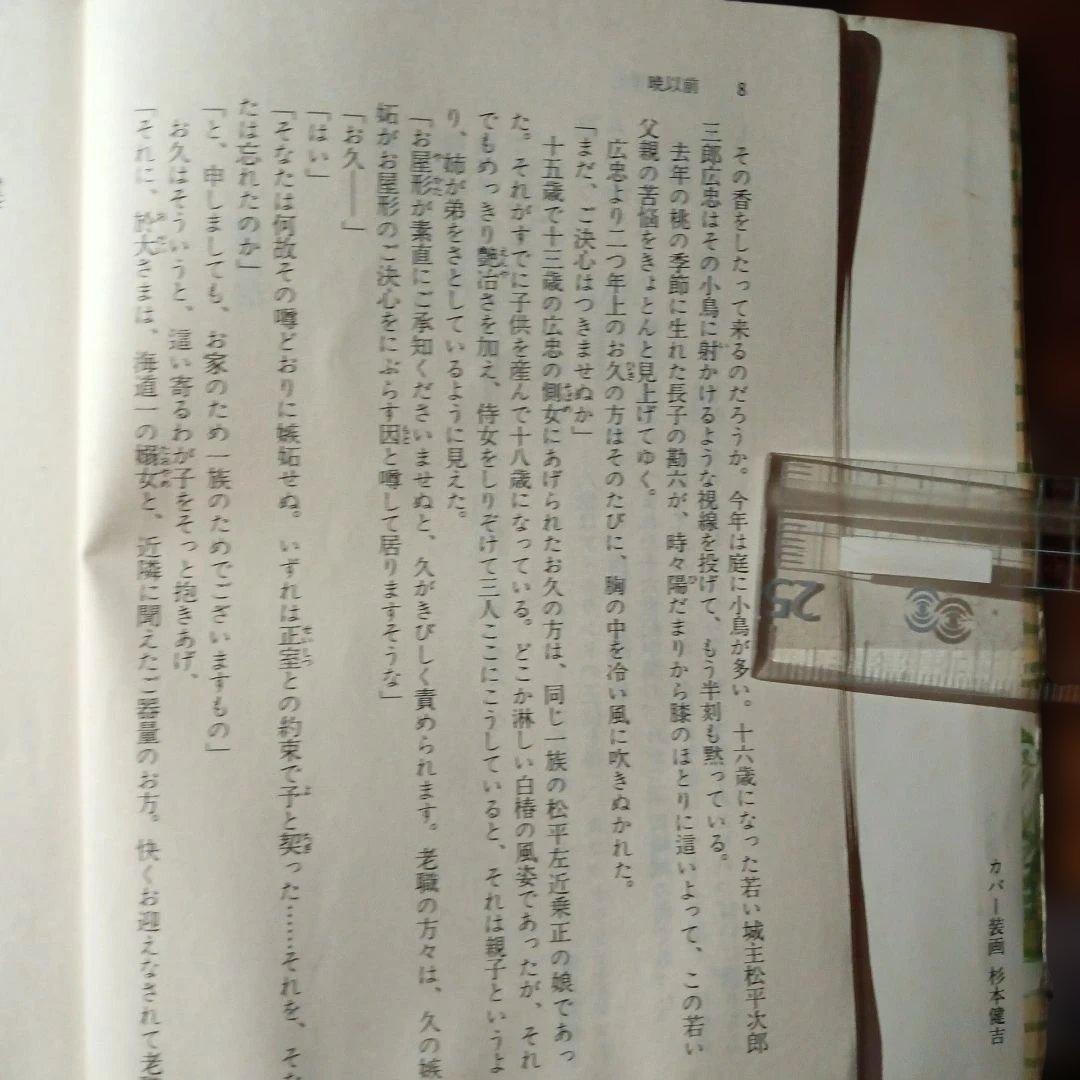 8
暁以前
その香をしたって来るのだろうか。今年は庭に小鳥が多い。十六歳になった若い城主松平次郎
三郎広忠はその小鳥に射かけるような視線を投げて、もう半刻も黙っている。
去年の桃の季節に生れた長子の勘六が、時々陽だまりから膝のほとりに這いよって、この若い
父親の苦悩をきょとんと見上げてゆく。
広忠より二つ年上のお久の方はそのたびに、胸の中を冷い風に吹きぬかれた。
「まだ、ご決心はつきませぬか」
十五歳で十三歳の広忠の側女にあげられたお久の方は、同じ一族の松平左近乗正の娘であっ
た。それがすでに子供を産んで十八歳になっている。どこか淋しい白椿の風姿であったが、それ
でもめっきり艶冶さを加え、侍女をしりぞけて三人ここにこうしていると、それは親子というよ
り、姉が弟をさとしているように見えた。
「お屋形が素直にご承知くださいませぬと、久がきびしく責められます。老職の方々は、久の嫉
妬がお屋形のご決心をにぶらす因と噂して居りますそうな」
「お久――」
「はい」
「そなたは何故その噂どおりに嫉妬せぬ。いずれは正室との約束で予と契った……それを、そな
たは忘れたのか」
「と、申しましても、お家のため一族のためでございますもの」
お久はそういうと、這い寄るわが子をそっと抱きあげ、
「それに、於大さまは、海道一の嫋女と、近隣に聞えたご器量のお方。快くお迎えなされて老
カバー装画 杉本健吉
25